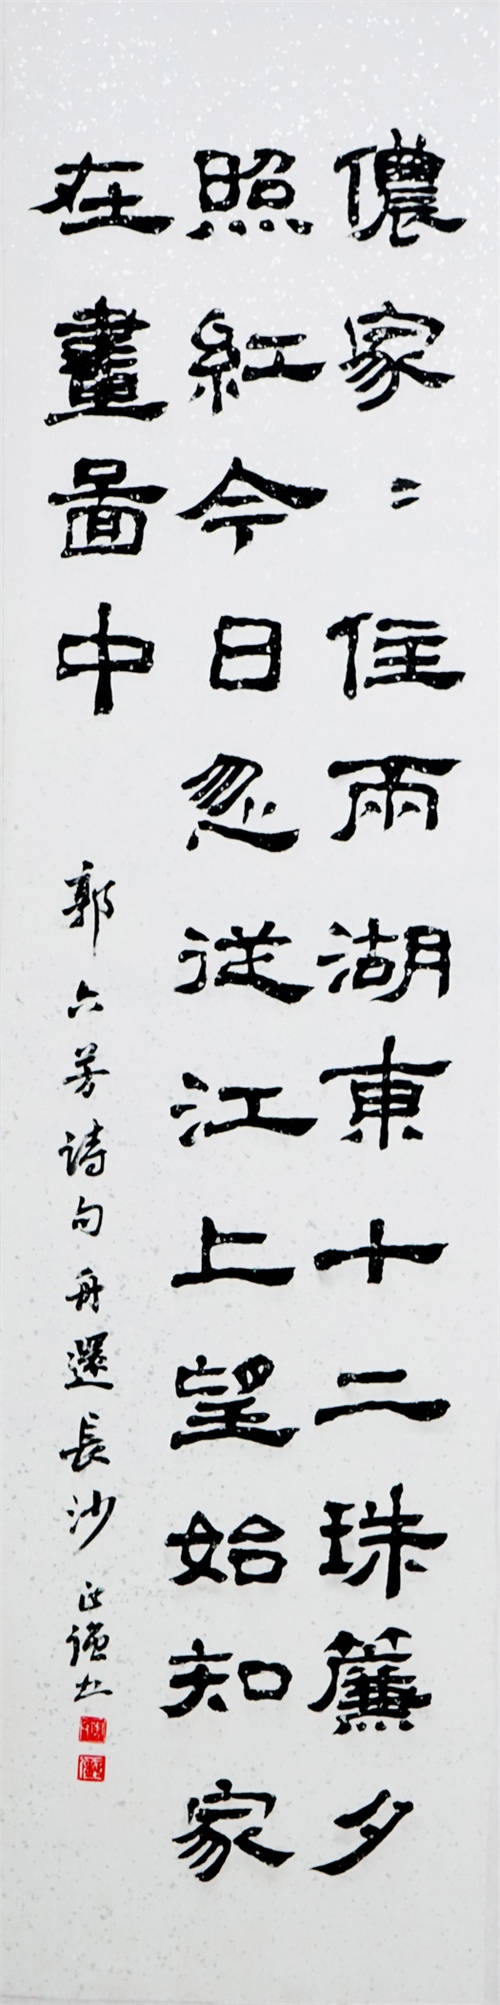 儂家〻住兩湖東十二珠簾夕
照紅今日忽從江上望始知家
在畫圖中
郭六芳詩句舟還長沙 正强书